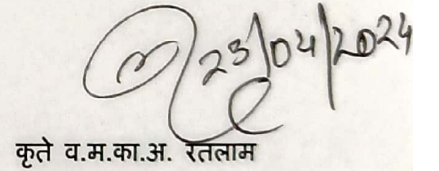 23/04/2024
कृते व.म.का.अ. रतलाम